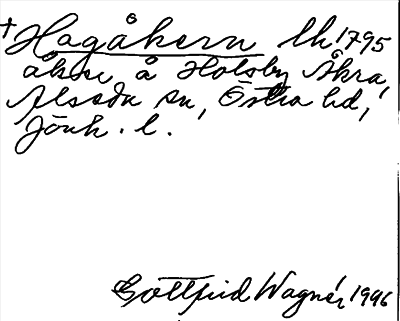 † Hagåkern Lhs 1795
åker å Holsby Åkra,
Alseda sn, Östra hd,
Jönk. l.
Gottfrid Wagnér 1946